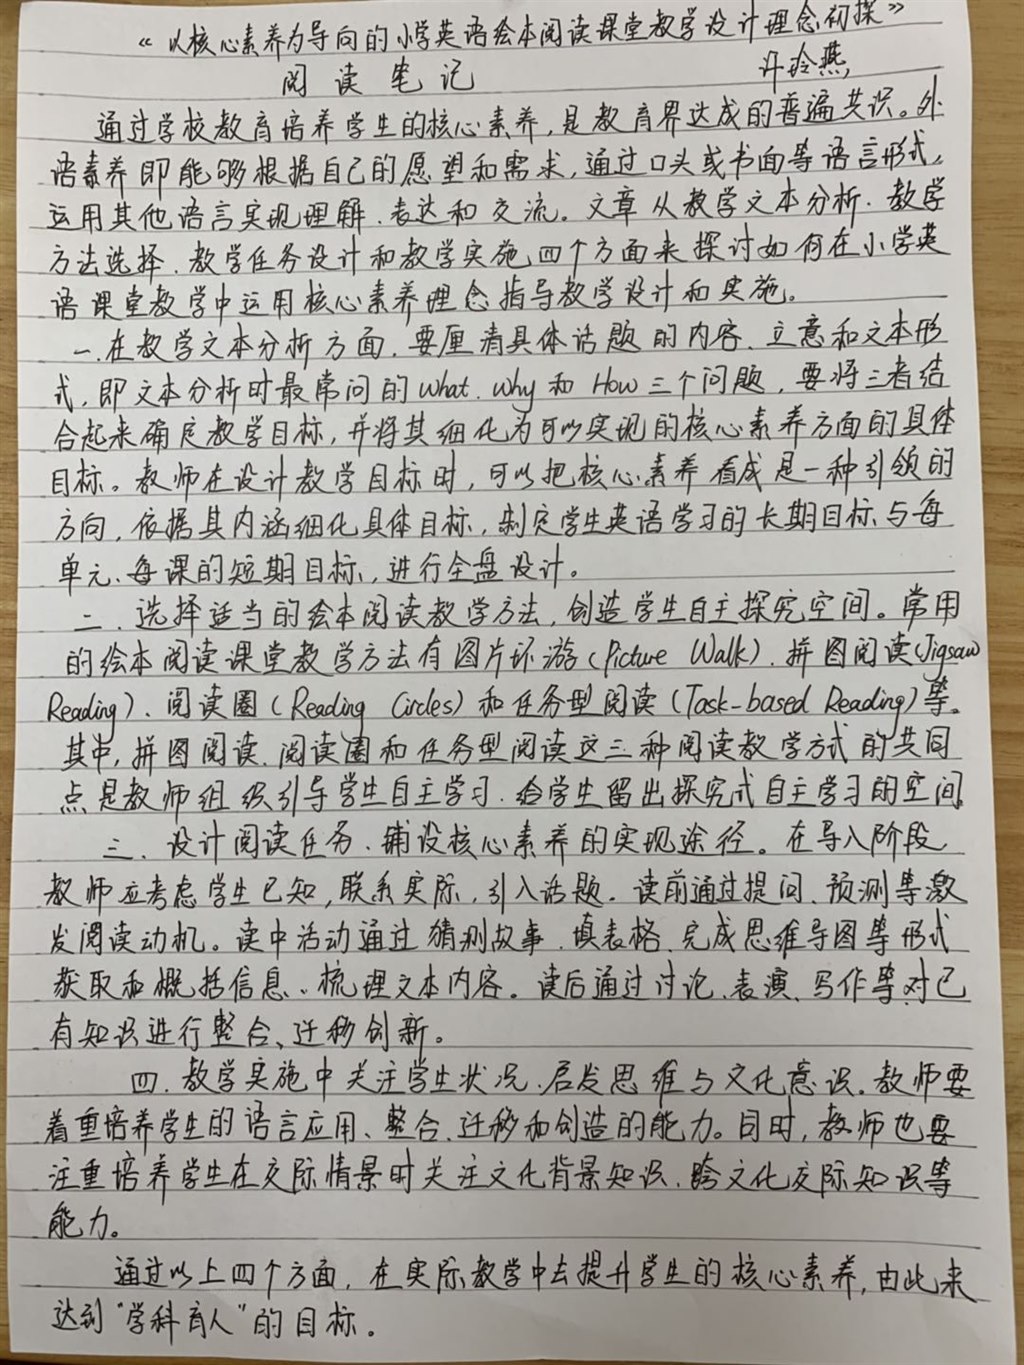 《以核心素养为导向的小学英语绘本阅读课堂教学设计理念初探》
阅读笔记 许玲燕
通过学校教育培养学生的核心素养,是教育界达成的普遍共识。外
语素养即能够根据自己的愿望和需求,通过口头或书面等语言形式,
运用其他语言实现理解、表达和交流。文章从教学文本分析、教学
方法选择、教学任务设计和教学实施四个方面来探讨如何在小学英
语课堂教学中运用核心素养理念指导教学设计和实施。
一、在教学文本分析方面,要厘清具体话题的内容、立意和文本形
式,即文本分析时最常问的What、Why和How三个问题,要将三者结
合起来确定教学目标,并将其细化为可以实现的核心素养方面的具体
目标。教师在设计教学目标时,可以把核心素养看成是一种引领的
方向,依据其内涵细化具体目标,制定学生英语学习的长期目标与每
单元、每课的短期目标,进行全盘设计。
二、选择适当的绘本阅读教学方法,创造学生自主探究空间。常用
的绘本阅读课堂教学方法有图片环游(Picture Walk)、拼图阅读(Jigsaw
Reading)、阅读圈(Reading Circles)和任务型阅读(Task-based Reading)等。
其中,拼图阅读、阅读圈和任务型阅读这三种阅读教学方式的共同
点是教师组织引导学生自主学习,给学生留出探究式自主学习的空间。
三、设计阅读任务,铺设核心素养的实现途径。在导入阶段
教师应考虑学生已知,联系实际,引入话题。读前通过提问、预测等激
发阅读动机。读中活动通过猜测故事、填表格、完成思维导图等形式
获取和概括信息、梳理文本内容。读后通过讨论、表演、写作等对已
有知识进行整合、迁移创新。
四、教学实施中关注学生状况,启发思维与文化意识。教师要
着重培养学生的语言应用、整合、迁移和创造的能力。同时,教师也要
注重培养学生在交际情景时关注文化背景知识、跨文化交际知识等
能力。
通过以上四个方面,在实际教学中去提升学生的核心素养,由此来
达到"学科育人"的目标。